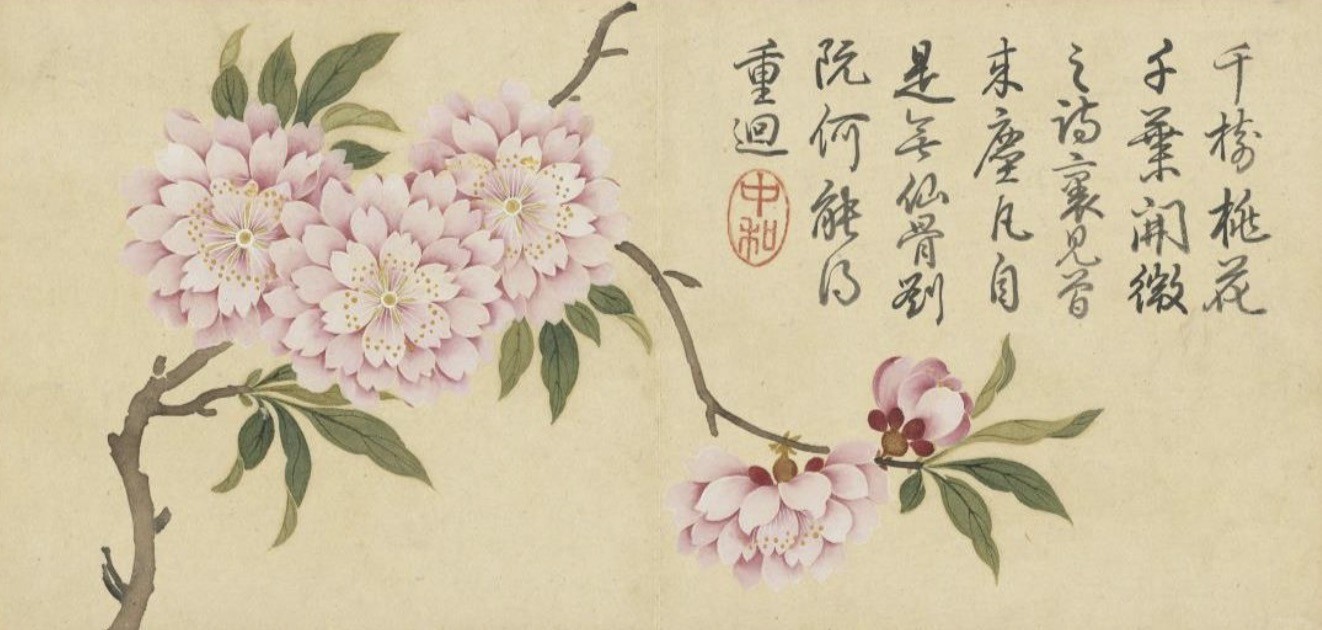 千樹桃花
千葉開微
之詩裏見曾
來塵凡自
是無仙骨劉
阮何能得
重迴
中和